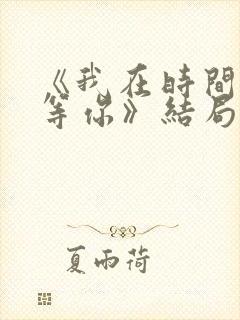 《我在時間
等你》結局
夏雨荷